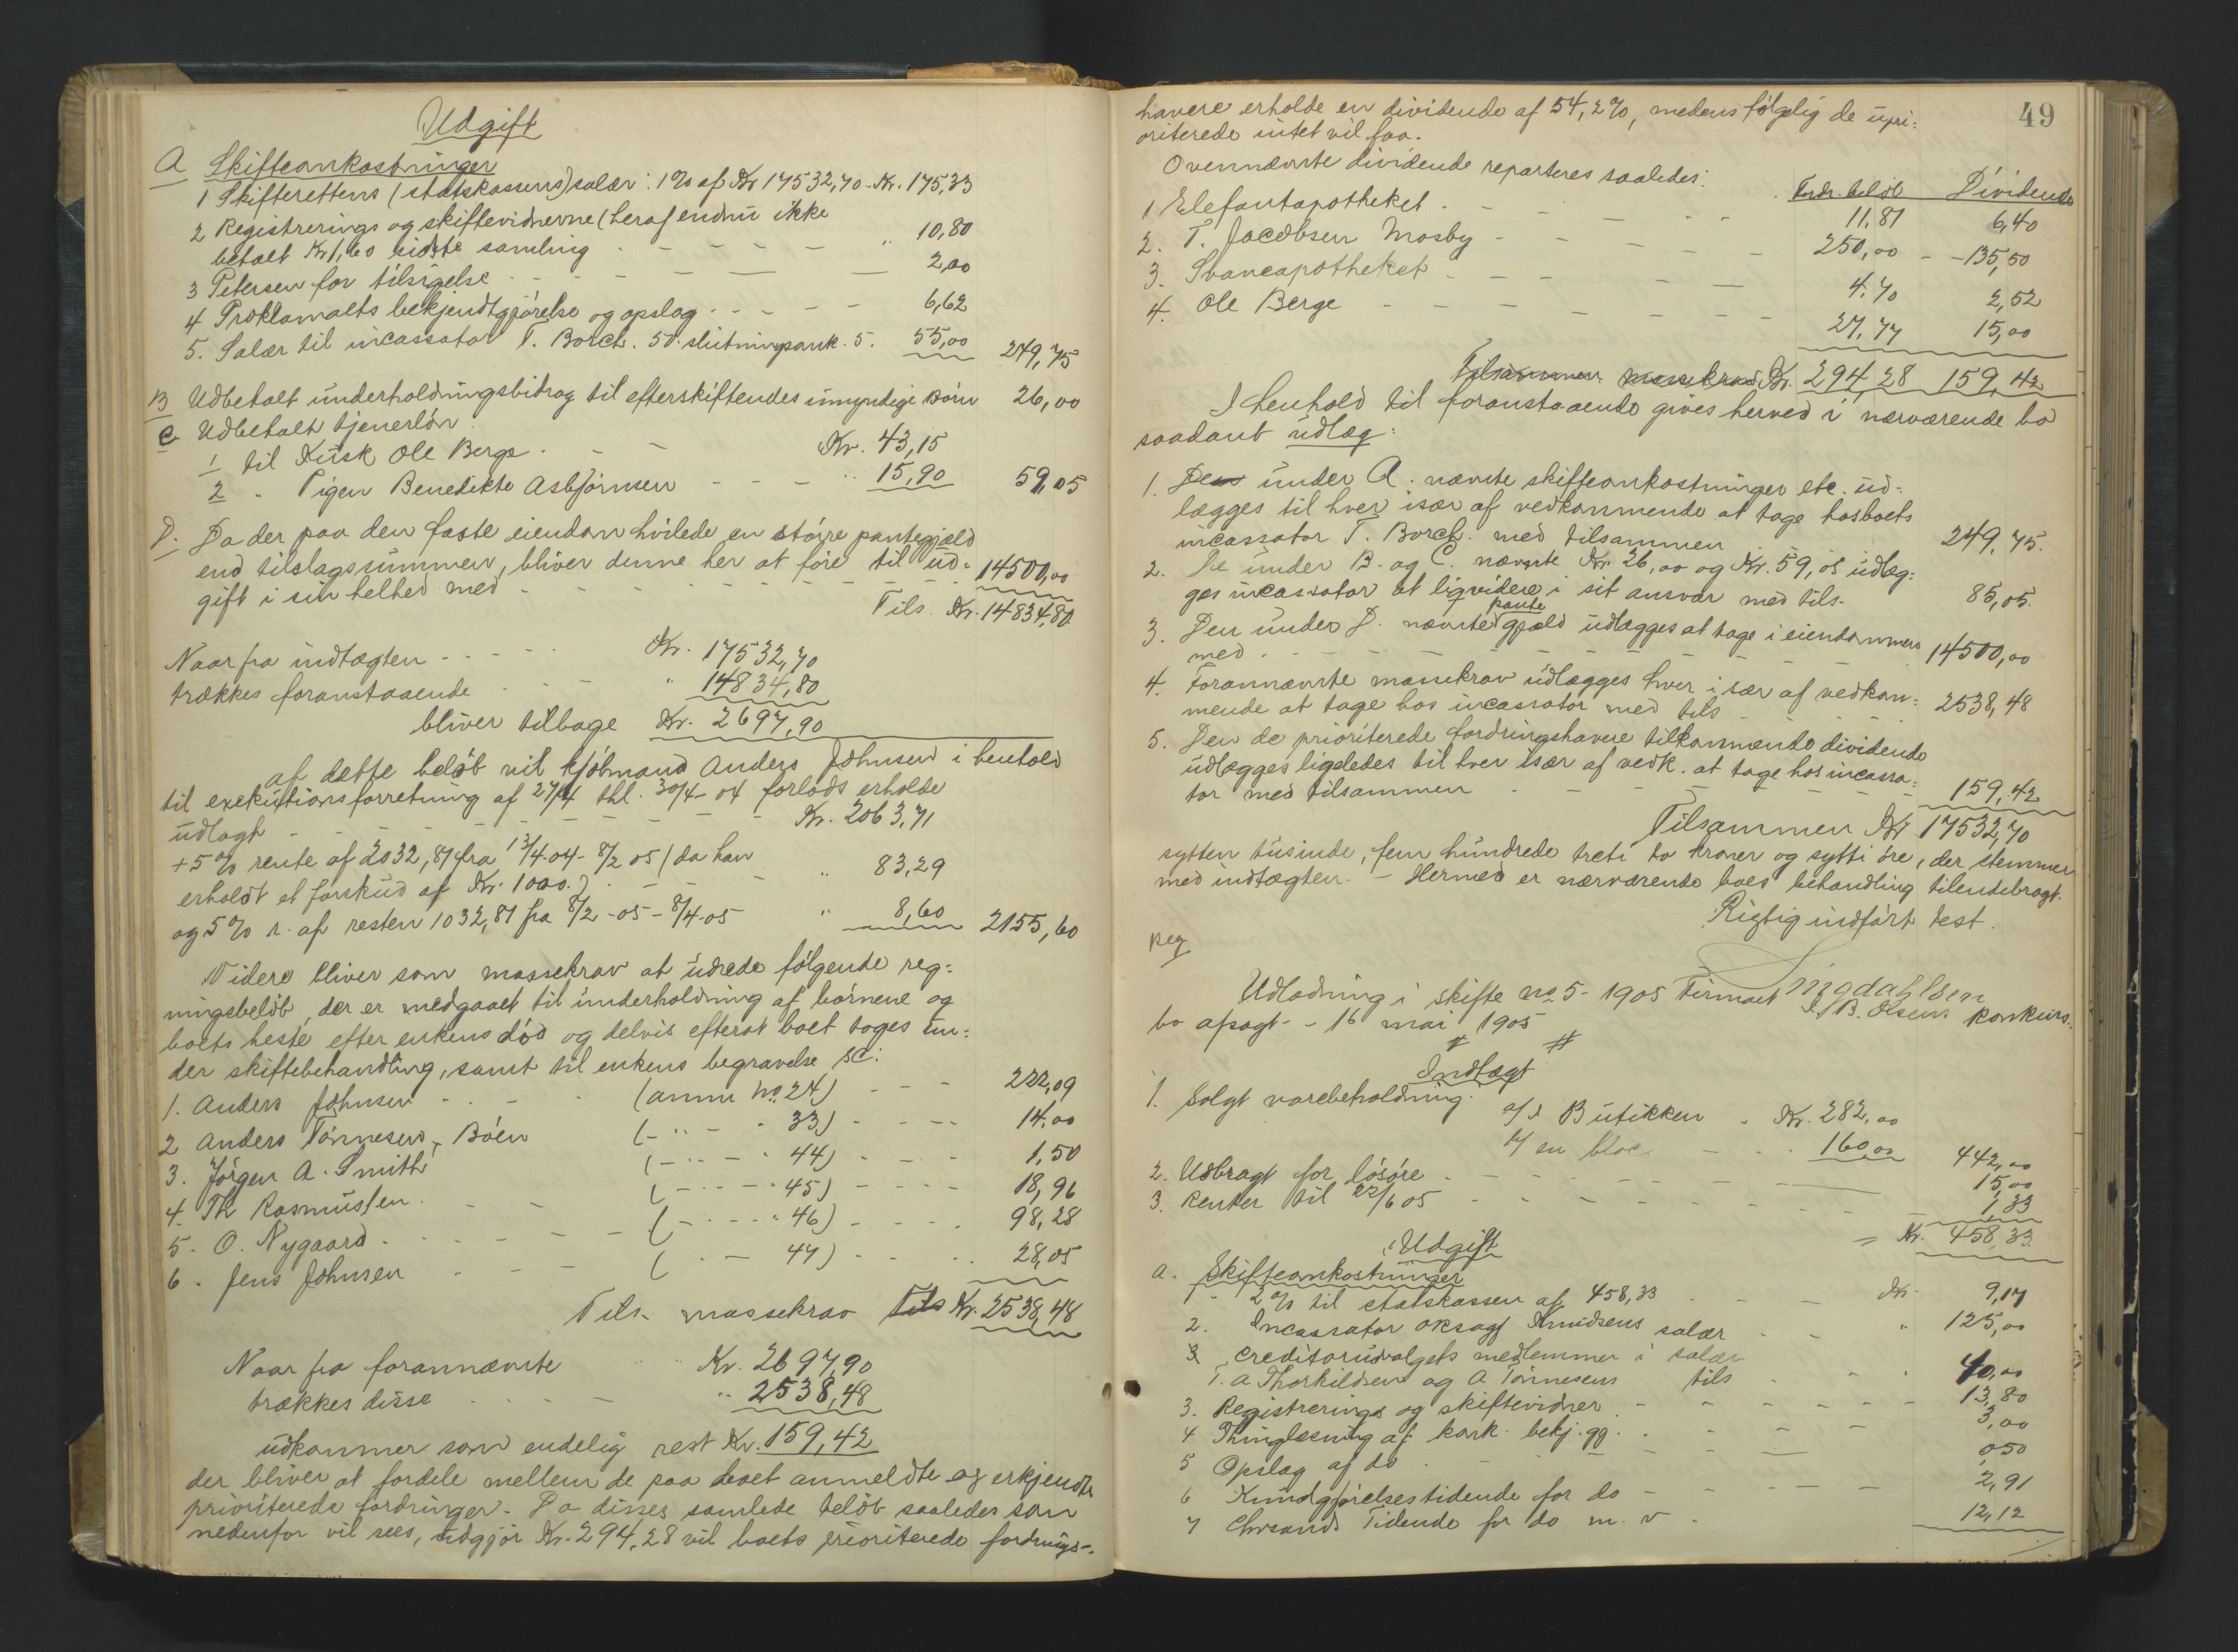 Udgift
A Skifteomkostninger
1 Skifterettens (statskassens) salær: 1% af Kr 17532,70 - Kr. 175,33
2 Registrerings og skiftevidnerne (heraf endnu ikke
betalt Kr 1,60 sidste samling - - - - - " 10,80
3 Petersen for tilsigelse - - - - - 2,00
4 Proklamaets bekjendtgjørelse og opslag - - - - 6,62
5. Salær til incassator T. Borch. 50. slutningsomk. 5. 55,00 249,75
B Udbetalt underholdningsbidrag til efterskiftendes umyndige børn 26,00
C Udbetalt tjenerløn:
1 til Kusk Ole Berge - - - Kr. 43,15
2 " Pigen Benedikte Asbjørnsen - - - " 15,90 59,05
D. Da der paa den faste eiendom hvilede en større pantegjæld
end tilslagssummen, bliver denne her at føre til ud-
gift i sin helhed med - - - - - - - - 14500,00
Tils. Kr. 14834,80
Naar fra indtægten - - - - Kr. 17532,70
trækkes foranstaaende - - - " 14834,80
bliver tilbage Kr. 2697,90
af dette beløb vil kjøbmand Anders Johnsen i henhold
til exekutionsforretning af 27/4 thl. 30/4-04 forlods erholde
udlagt - - - - - - - - - Kr. 2063,71
+ 5% rente af 2032,81 fra 13/4-04 - 8/2 05 (da han
erholdt et forskud af Kr. 1000.) - - - " 83,29
og 5% r. af resten 1032,81 fra 8/2-05 - 8/4-05 " 8,60 2155,60
Videre bliver som massekrav at udrede følgende reg-
ningsbeløb, der er medgaaet til underholdning af børnene og
boets heste efter enkens død og delvis efterat boet toges un-
der skiftebehandling, samt til enkens begravelse, sc:
1. Anders Johnsen - - - (anm no. 24) - - - 222,09
2 Anders Tønnesen, Bøen (- " - " 33) - - - 14,00
3. Jørgen A. Smith (- " - " 44) - - - 1,50
4. Th Rasmussen - - - (- " - " 45) - - - 18,96
5. O. Nygaard - - - - (- " - " 46) - - - 98,28
6. Jens Johnsen - - - ( " - 47) - - - 28,05
Tils. massekrav Tils Kr. 2538,48
Naar fra forannævnte " " Kr. 2697,90
trækkes disse - - - - " 2538,48
udkommer som endelig rest Kr. 159,42
der bliver at fordele mellem de paa boet anmeldte og erkjendte
prioriterede fordringer. Da disses samlede beløb saaledes som
nedenfor vil sees, udgjør Kr. 294,28 vil boets prioriterede fordrings-
49
havere erholde en dividende af 54,2%, medens følgelig de upri-
oriterede intet vil faa.
Ovennævnte dividende reparteres saaledes:
Fordr. beløb Dividende
1 Elefantapotheket - - - - - 11,81 6,40
2. T. Jacobsen Mosby - - - - - 250,00 - - 135,50
3. Svaneapotheket - - - - - 4,70 2,52
4. Ole Berge - - - - - - 27,77 15,00
Tilsammen massekrav Kr. 294,28 159,42
I henhold til foranstaaende gives herved i nærværende bo
saadant udlæg:
1. De under A. nævnte skifteomkostninger etc. ud-
lægges til hver især af vedkommende at tage hos boets
incassator T. Borch. med tilsammen - - 249,75.
2. De under B. og C. nævnte Kr. 26,00 og Kr. 59,05 udlæg-
ges incassator at liqvidere i sit ansvar med tils. 85,05.
3. Den under D. nævnte pante gjæld udlægges at tage i eiendommen
med - - - - - - - - - 14500,00
4. Forannævnte massekrav udlægges hver i sær af vedkom-
mende at tage hos incassator med tils - - - 2538,48
5. Den de prioriterede fordringshavere tilkommende dividende
udlægges ligeledes til hver især af vedk. at tage hos incassa-
tor med tilsammen - - - - - - - 159,42
Tilsammen Kr 17532,70
sytten tusinde, fem hundrede treti to kroner og sytti øre, der stemmer
med indtægten. - Hermed er nærværende boes behandling tilendebragt.
Rigtig indført test.
Reg
Udlodning i skifte no 5 - 1905 Firmaet S. B. Olsens konkurs-
bo afsagt - 16 mai 1905
Indtægt
1. Solgt varebeholdning:
a/ i Butikken - Kr. 282,00
b/ en bloc - - " 160,00 442,00
2. Udbragt for løsøre - - - - - - - 15,00
3. Renter til 22/6 05 - - - - - - - 1,33
= Kr. 458,33
Udgift
a. Skifteomkostninger
1 2% til statskassen af 458,33 - - - Kr. 9,17
2. Incassator oksagf Knudsens salær - - " 125,00
3 Creditorudvalgets medlemmer i salær
T. A Thorkildsen og A Tønnesens tils - - - 40,00
3. Registrerings og skiftevidner - - - - - - 13,80
4 Thinglæsning af konk. bekj.gj. - - - - 3,00
5 Opslag af do - - - - - 0,50
6 Kundgjørelsestidende for do - - - - - 2,91
7 Chrsands Tidende for do m. v - 12,12